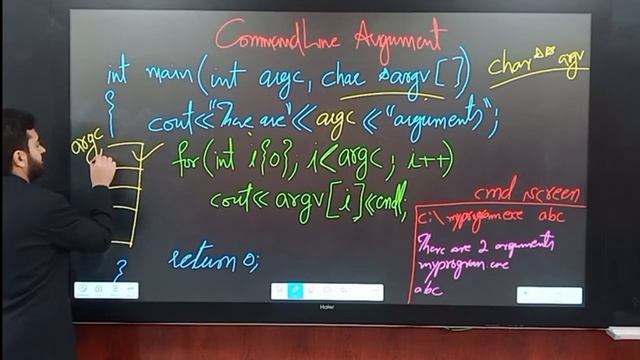 CommandLine Argument
int main(int argc, char *argv[])
char** argv
{
cout<<"There are"<<argc<<"arguments";
argc
for(int i{0}; i<argc; i++)
cout<<argv[i]<<endl;
cmd screen
c:\myprogram.exe abc
There are 2 arguments
myprogram.exe
abc
return 0;
}
Haier